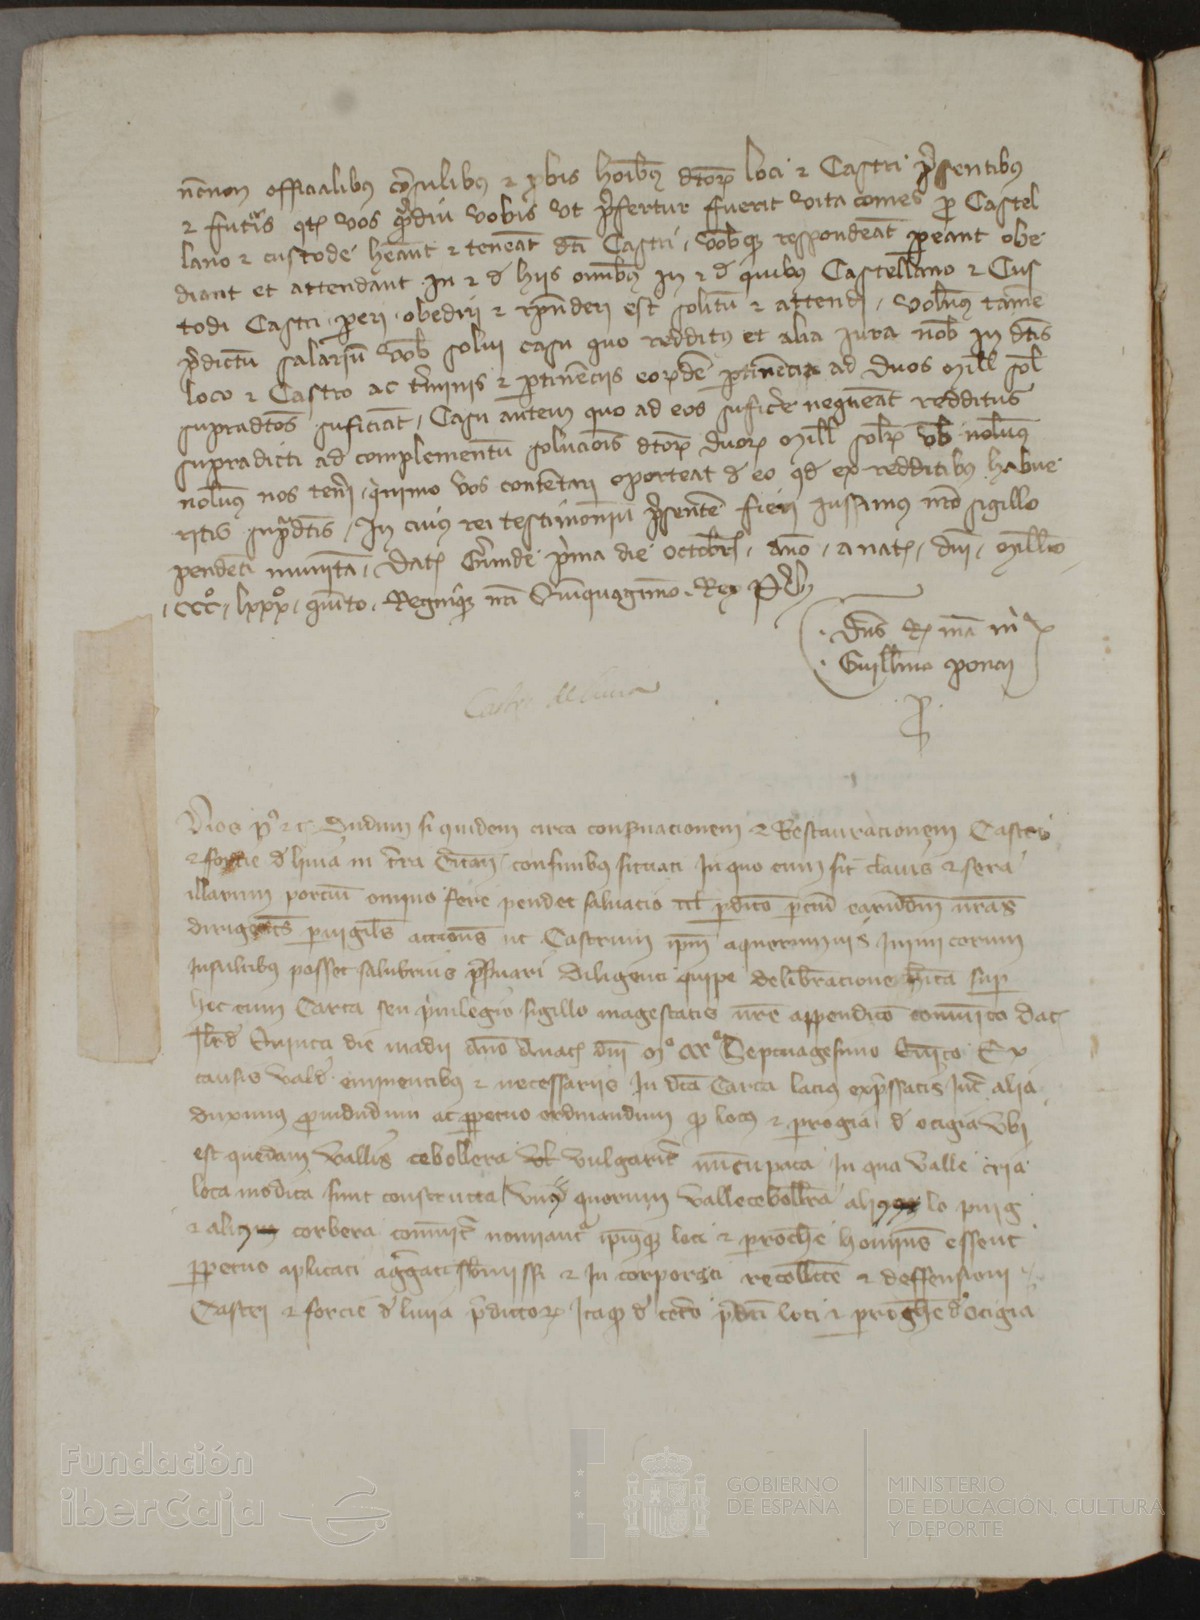 necnon officialibus consulibus et probis hoibus dtorum loci et Castri presentibus
et futuris qts vos quamdiu vobis ut prefertur fuerit vita comes pro Castel
lano et custode heant et teneant dti Castri, vobque respondeant pareant obe
diant et attendant in et de hiis omnibus in et de quibus Castellano et Cus
todi Castri pareri obediri et responderi est solitum et attendi, volumus tamen
predictum salarium vob solvi casu quo redditus et alia iura nob in dtis
loco et Castro ac terminis et pertinenciis eorumdem pertinencia ad duos mill sol
supradtos sufficiant, Casu autem quo ad eos sufficere nequeant redditus
supradicti ad complementum solucionis dtorum duorum mill solidorum vob nolumus
nolumus nos teneri, quinimo vos contentari oporteat de eo quod ex redditibus habue
ritis supradtis, In cuius rei testimonium presentem fieri iussimus nostro sigillo
pendenti munitam, Dat Gerunde prima die octobris, anno, a nat, dni, Millo
, CCCo, lxxxo, quinto, Regnique nri Quinquagesimo. Rex P
Dns R ma m
Guillmo poncii
P
Nos P etc Dudum siquidem circa conservacionem et Restauracionem Castri
et forcie de livia in terra Ceritan confinibus situati In quo cum sit clavis et sera
illarum parcium omnino fere pendet salvacio predicto earundem nras
dirigentes pervigiles acciones ut Castrum ipm aquerumvis Inimicorum
Insultibus posset salubrius preservari diligenti quipe deliberacione hita super
hec cum Carta seu privilegio sigillo magestatis nre appendicio comunita dat
Ilerde Quinta die madii Anno Anat dni Mo CCCo Septuagesimo Quinto Ex
causis valde eminentibus et necessariis In dta Carta lacius expressatis Inter alia
duximus providendum ac perpetuo ordinandum quod locus et parrogia de ocigia Ubi
est quedam Vallis cebollera vel vulgariter nuncupata In qua Valle tria
loca modica sunt constructa Unum quorum Vallecebollera aliud lo puig
et aliud corbera comuniter nominantur ipsiusque loci et parochie homines essent
perpetuo aplicati agregati submissi et In corporati recollecte et deffensioni
Castri et forcie de livia predictorum, Itaque de cetero predicti loci et parrochie de ocigia
Fundación
iberCaja
GOBIERNO
DE ESPAÑA
MINISTERIO
DE EDUCACIÓN, CULTURA
Y DEPORTE